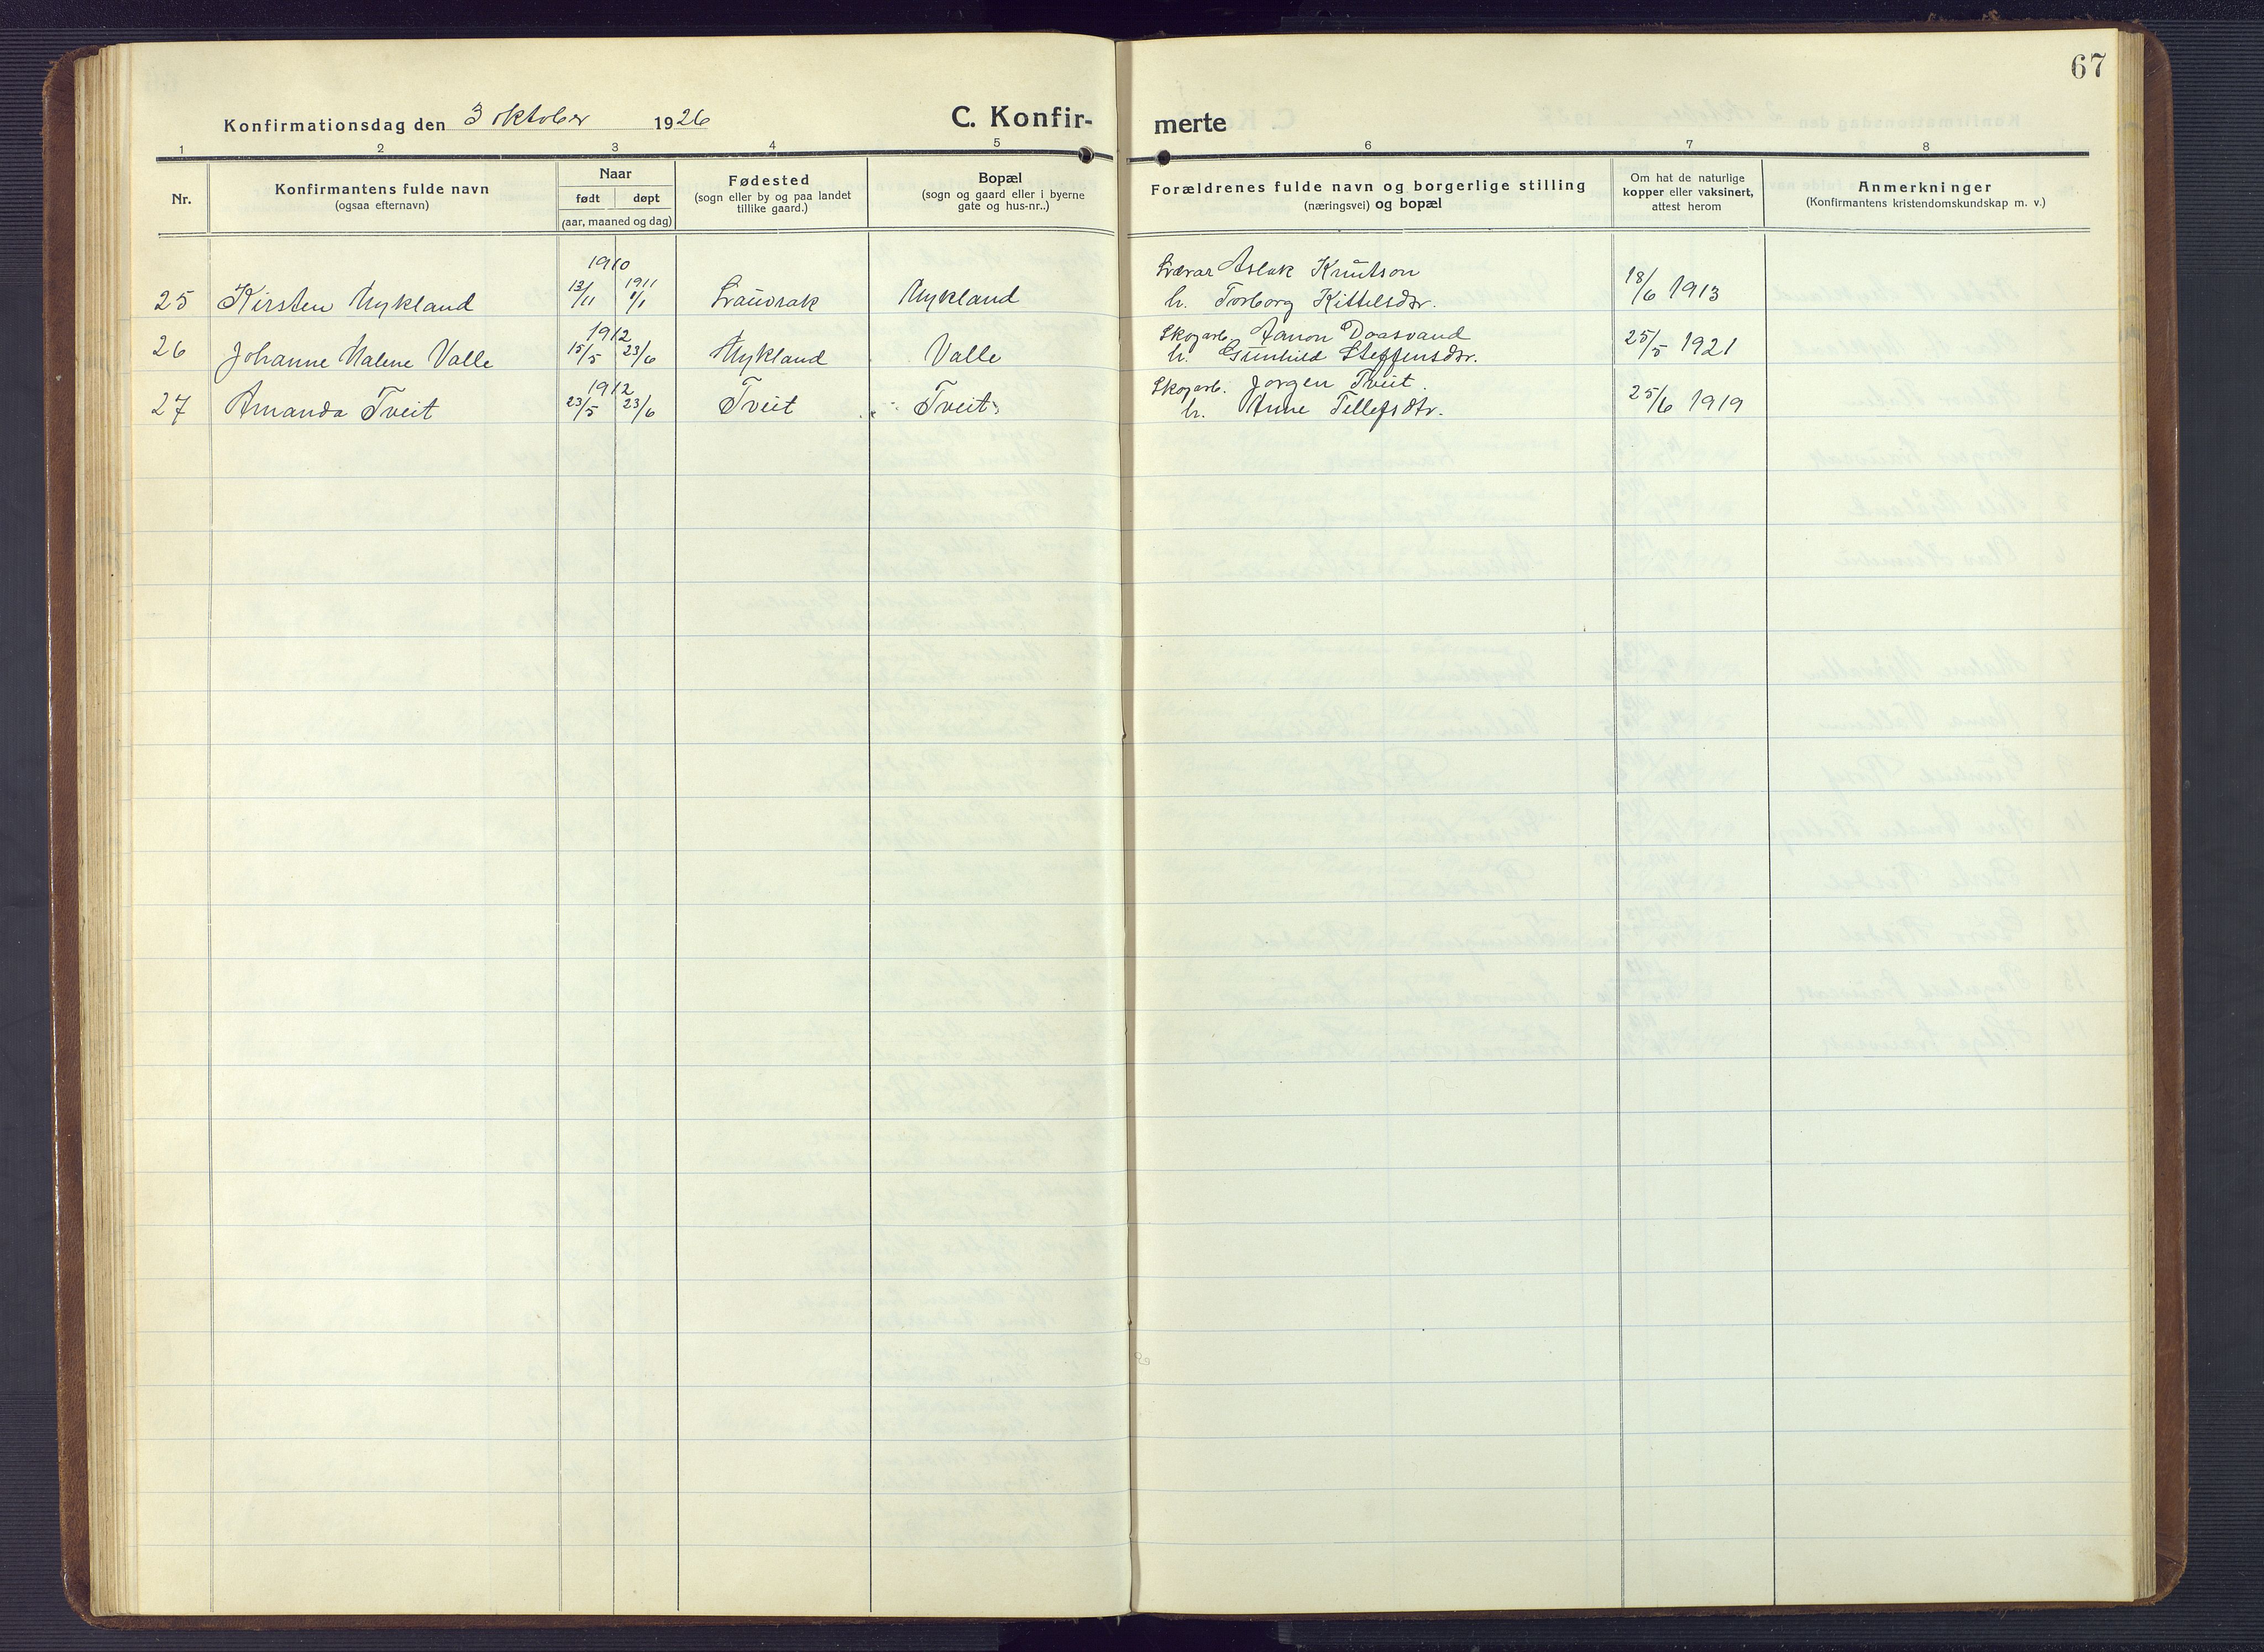 67
Konfirmationsdag den 3 oktober 1926
C. Konfir- merte
1 2 3 4 5 6 7 8
Nr.
Konfirmantens fulde navn
(ogsaa efternavn)
Naar
født døpt
(aar, maaned og dag)
Fødested
(sogn eller by og paa landet
tillike gaard.)
Bopæl
(sogn og gaard eller i byerne
gate og hus-nr..)
Forældrenes fulde navn og borgerlige stilling
(næringsvei) og bopæl
Om hat de naturlige
kopper eller vaksinert,
attest herom
Anmerkninger
(Konfirmantens kristendomskundskap m. v.)
1910
Aslak Knutson
25 Kirsten Mykland 13/11 1911 1/1 Lauvrak Mykland h. Torborg Kittelsdtr. 18/6 1913
1912
Skogarb. Aanon Daasvand
26 Johanne Malene Valle 15/5 23/6 Mykland Valle h. Gunhild Steffensdtr. 25/5 1921
1912
Skogarb. Jorgen Tveit.
27 Amanda Tveit 23/5 23/6 Tveit Tveit h. Anne Tellefsdtr. 25/6 1919